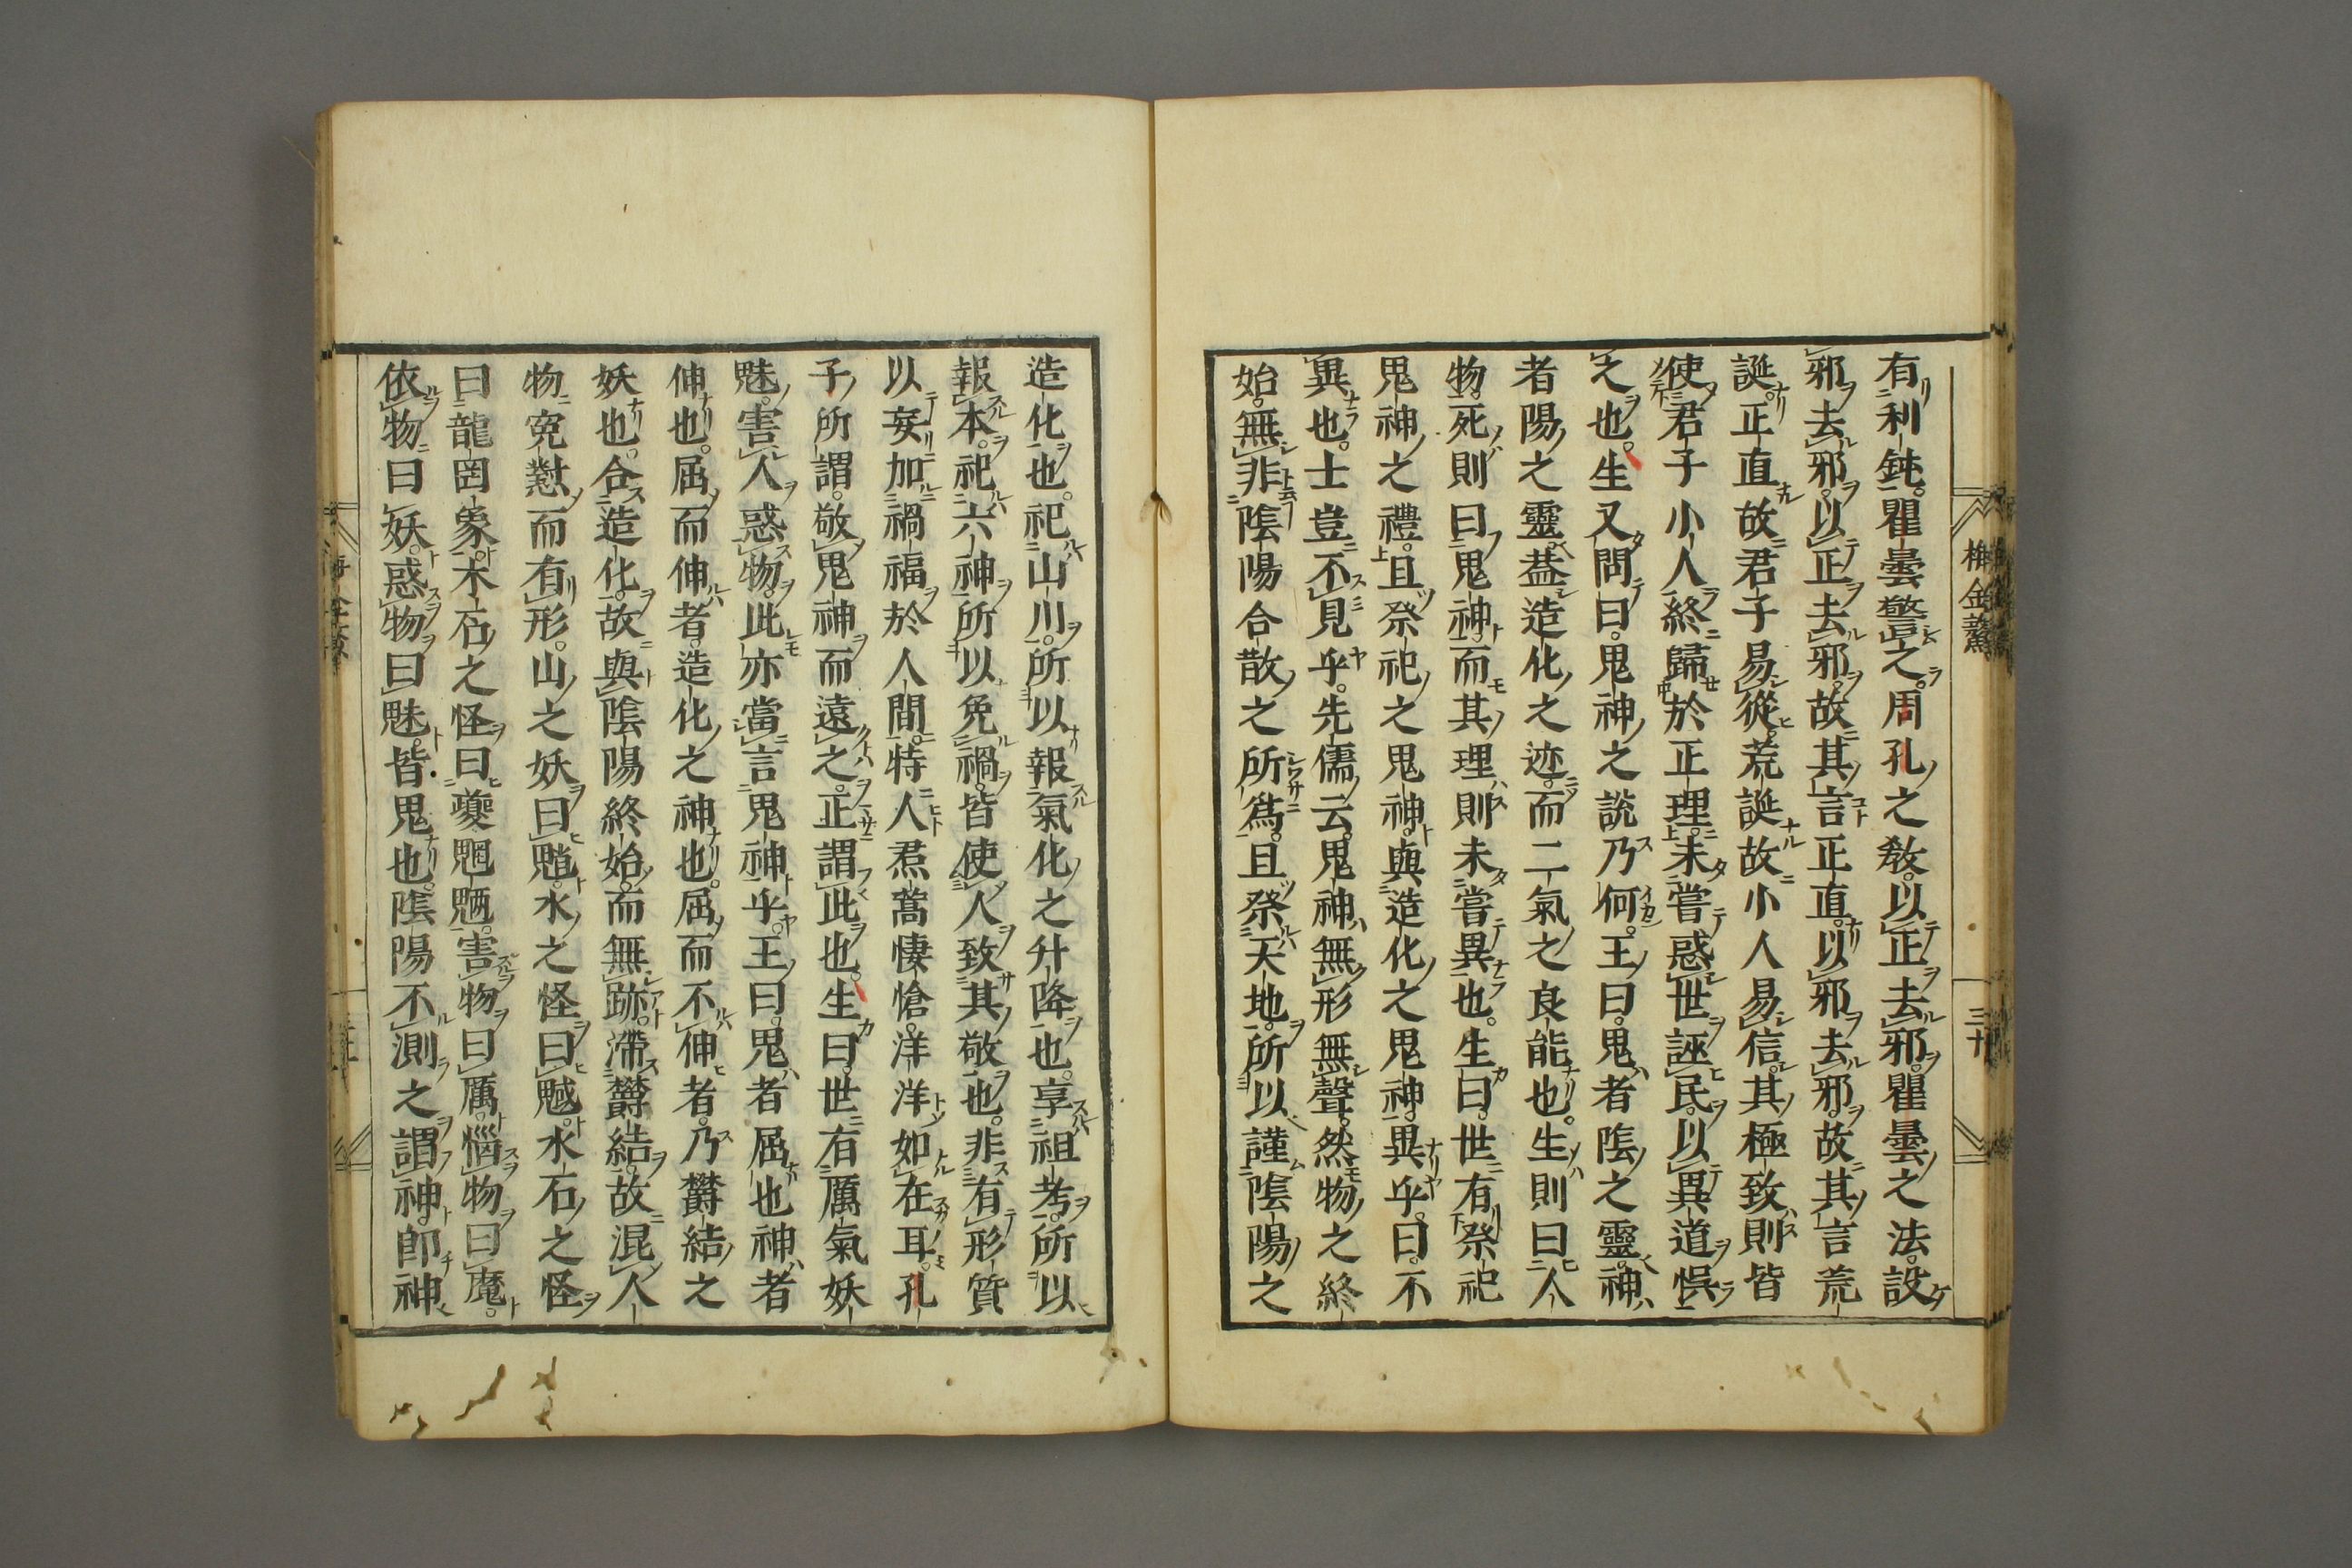 有利鈍。瞿曇警之。周孔之敎。以正去邪。瞿曇之法。設
邪去邪。以正去邪。故其言正直。以邪去邪。故其言荒
誕。正直故君子易從。荒誕故小人易信。其極致則皆
使君子小人終歸於正理。未嘗惑世誣民。以異道悞
之也。生又問曰。鬼神之說乃何。王曰。鬼者陰之靈。神
者陽之靈。蓋造化之迹。而二氣之良能也。生則曰人
物。死則曰鬼神。而其理則未嘗異也。生曰。世有祭祀
鬼神之禮。且祭祀之鬼神。與造化之鬼神。異乎。曰。不
異也。士豈不見乎。先儒云。鬼神無形無聲。然物之終
始。無非陰陽合散之所爲。且祭天地。所以謹陰陽之
造化也。祀山川。所以報氣化之升降也。享祖考。所以
報本。祀六神。所以免禍。皆使人致其敬也。非有形質
以妄加禍福於人間。特人焄蒿悽愴。洋洋如在耳。孔
子所謂。敬鬼神而遠之。正謂此也。生曰。世有厲氣妖
魅。害人惑物。此亦當言鬼神乎。王曰。鬼者屈也神者
伸也。屈而伸者。造化之神也。屈而不伸者。乃鬱結之
妖也。合造化。故與陰陽終始。而無跡。滯鬱結。故混人
物寃懟而有形。山之妖曰魈。水之怪曰魊。水石之怪
曰龍罔象。木石之怪曰夔魍魎。害物曰厲。惱物曰魔。
依物曰妖。惑物曰魅。皆鬼也。陰陽不測之謂神。卽神
梅金鰲
三十